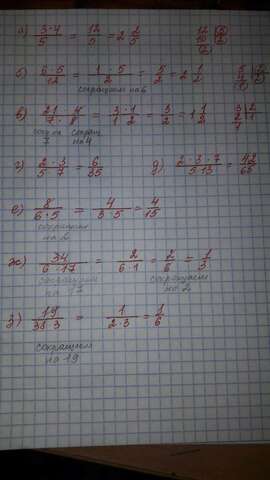 а) 3·4/5 = 12/5 = 2 2/5
б) 6·5/12 = 1·5/2 = 5/2 = 2 1/2
сокращаем на 6
в) 21·4/7·8 = 3·1/1·2 = 3/2 = 1 1/2
г) 2·3/5·7 = 6/35 д) 2·3·7/5·13 = 42/65
е) 8/6·5 = 4/3·5 = 4/15
сокращаем
на 2
ж) 34/6·17 = 2/6·1 = 2/6 = 1/3
сокращаем сокращаем
на 17 на 2
з) 19/38·3 = 1/2·3 = 1/6
сокращаем
на 19